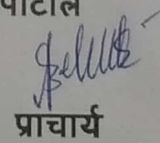 पाटील
प्राचार्य